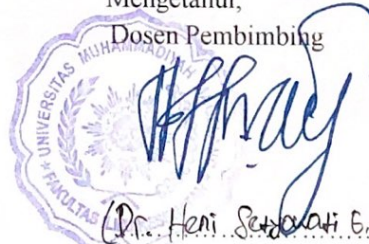 Mengetahui,
Dosen Pembimbing
UNIVERSITAS MUHAMMADIYAH
FAKULTAS
(Dr. Heni Setyowati E.